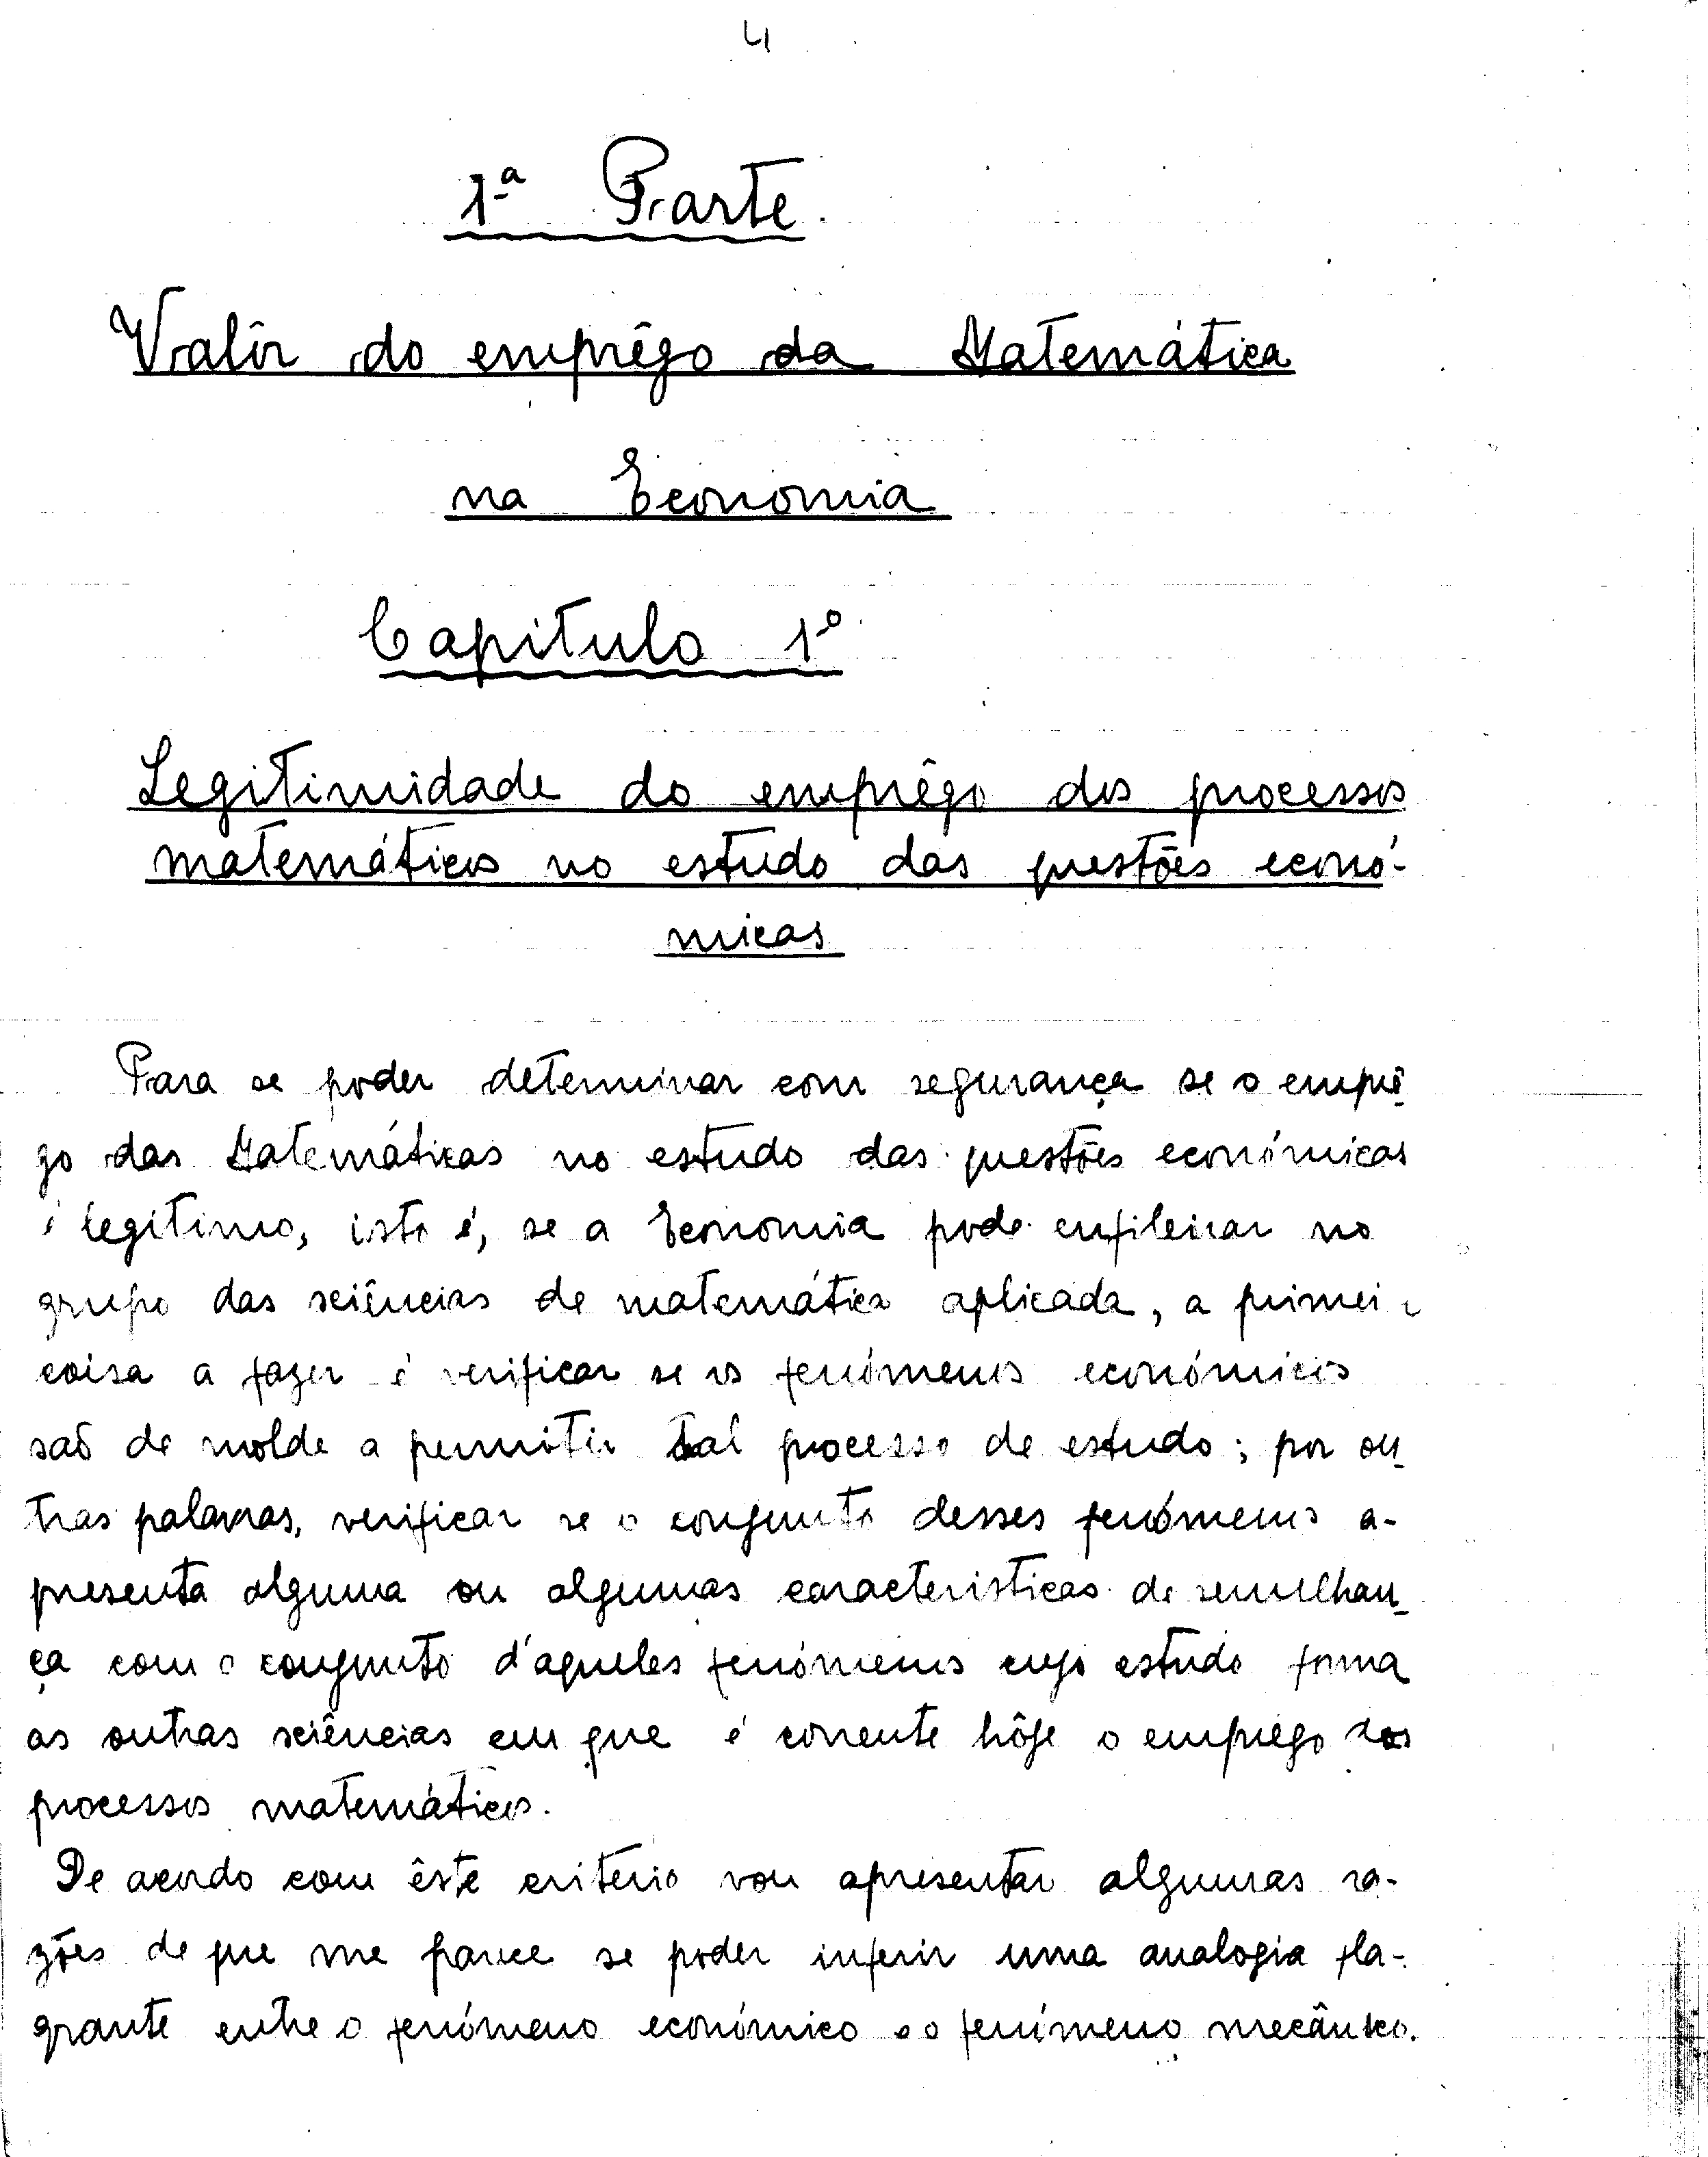 4
1ª Parte.
Valôr do emprêgo da Matemática
na Economia
Capitulo 1º
Legitimidade do emprêgo dos processos
matemáticos no estudo das questões econó-
micas
Para se poder determinar com segurança se o emprê-
go das Matemáticas no estudo das questões económicas
é legitimo, isto é, se a Economia pode enfileirar no
grupo das sciências de matemática aplicada, a primei
coisa a fazer é verificar se os fenómenos económicos
saõ de molde a permitir tal processo de estudo; por ou-
tras palavras, verificar se o conjunto desses fenómenos a-
presenta alguma ou algumas caracteristicas de semelhan-
ça com o conjunto d'aqueles fenómenos cujo estudo forma
as outras sciências em que é corrente hôje o emprego dos
processos matemáticos.
De acordo com êste criterio vou apresentar algumas ra-
zões de que me parece se poder inferir uma analogia fla-
grante entre o fenómeno económico e o fenómeno mecânico.